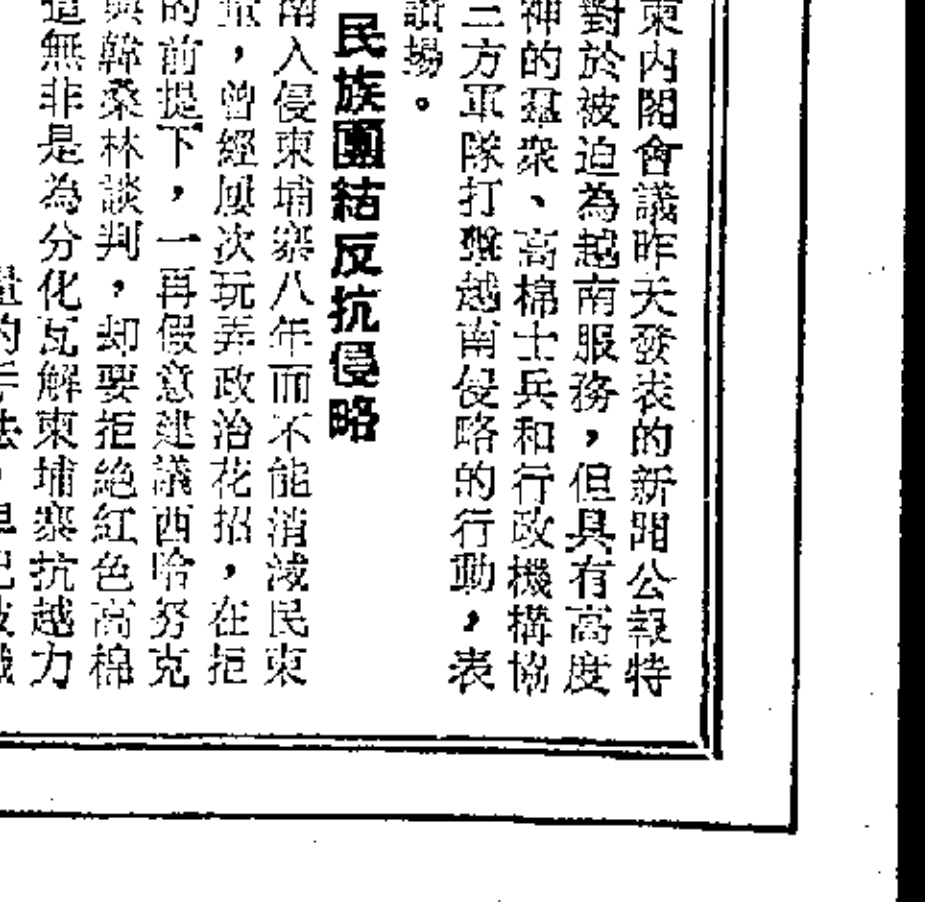 東內閣會議昨天發表的新聞公報特
對於被迫為越南服務，但具有高度
神的羣衆、高棉士兵和行政機構協
三方軍隊打擊越南侵略的行動，表
讚揚。
民族團結反抗侵略
南入侵柬埔寨八年而不能消滅民柬
，曾經屢次玩弄政治花招，在拒
的前提下，一再假意建議西哈努克
與韓桑林談判，却要拒絶紅色高棉
這無非是為分化瓦解柬埔寨抗越力
量的手法，早已被